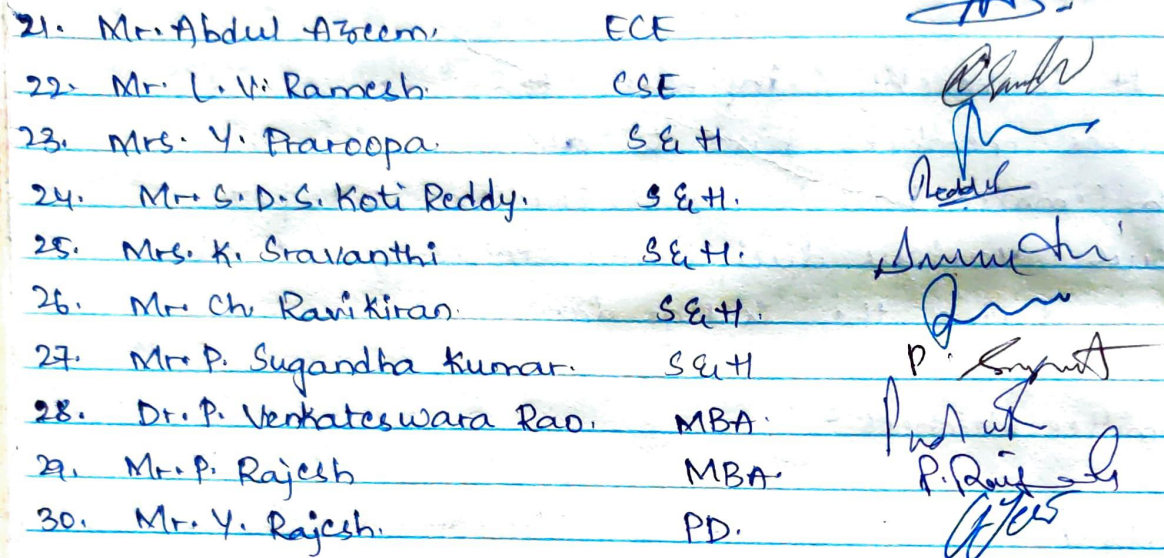 21. Mr. Abdul Azeem. ECE
22. Mr. L. V. Ramesh. CSE
23. Mrs. Y. Praroopa. S & H
24. Mr. S. D. S. Koti Reddy. S & H.
25. Mrs. K. Sravanthi S & H.
26. Mr. Ch. Ravi Kiran. S & H.
27. Mr. P. Sugandha Kumar. S & H
28. Dr. P. Venkateswara Rao. MBA.
29. Mr. P. Rajesh MBA.
30. Mr. Y. Rajesh. PD.